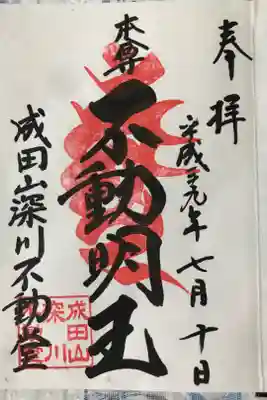 奉拝
平成二十九年七月十日
本尊
不動明王
成田山深川不動堂
成田山
深川